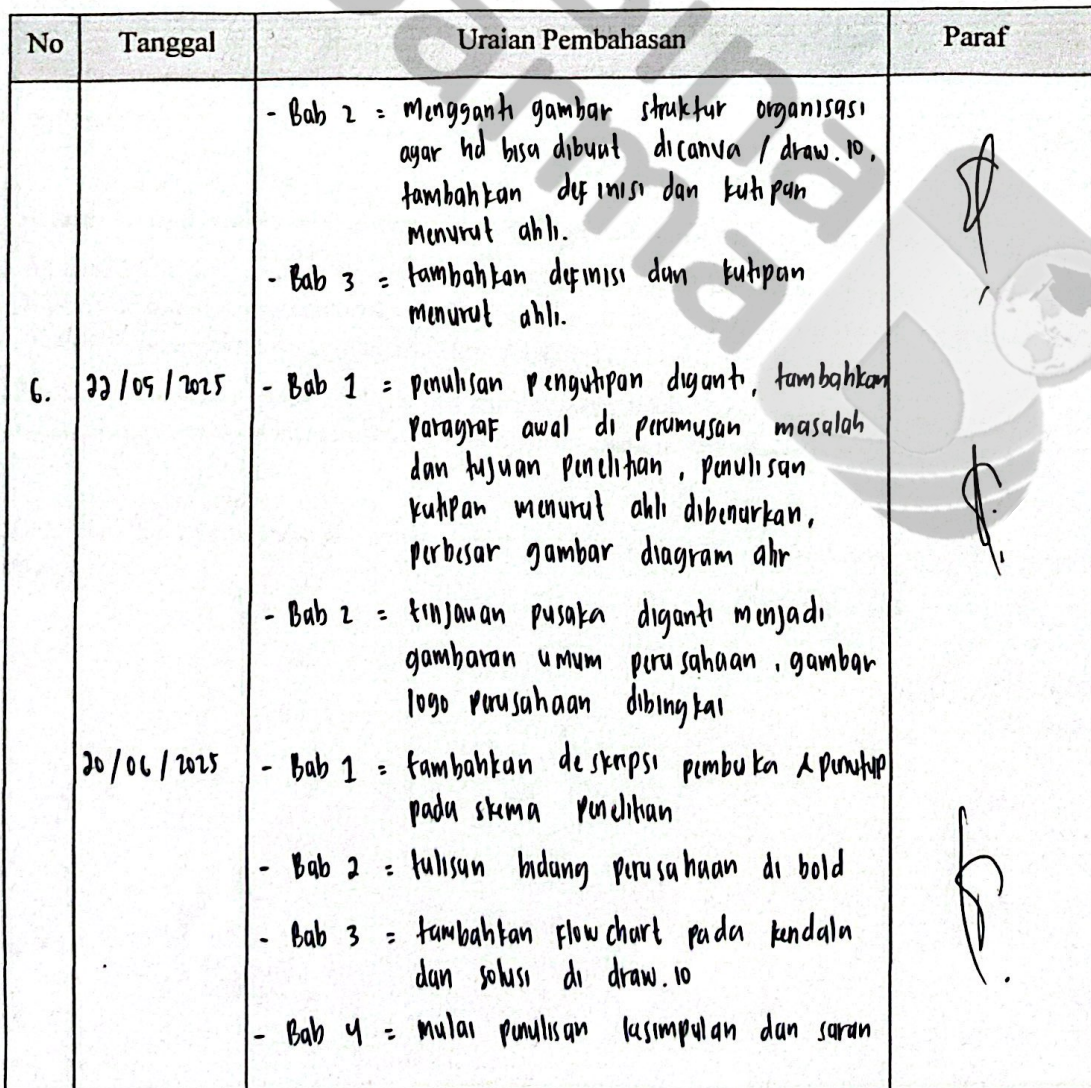 No Tanggal Uraian Pembahasan Paraf
- Bab 2 = Mengganti gambar struktur organisasi
agar hd bisa dibuat dicanva / draw.io,
tambahkan definisi dan kutipan
menurut ahli.
- Bab 3 = tambahkan definisi dan kutipan
menurut ahli.
6. 22/05/2025 - Bab 1 = penulisan pengutipan diganti, tambahkan
paragraf awal di perumusan masalah
dan tujuan penelitian, penulisan
kutipan menurut ahli dibenarkan,
perbesar gambar diagram alir
- Bab 2 = tinjauan pusaka diganti menjadi
gambaran umum perusahaan, gambar
logo perusahaan dibingkai
20/06/2025 - Bab 1 = tambahkan deskripsi pembuka & penutup
pada skema penelitian
- Bab 2 = tulisan bidang perusahaan di bold
- Bab 3 = tambahkan flowchart pada kendala
dan solusi di draw.io
- Bab 4 = mulai penulisan kesimpulan dan saran
bina
darma